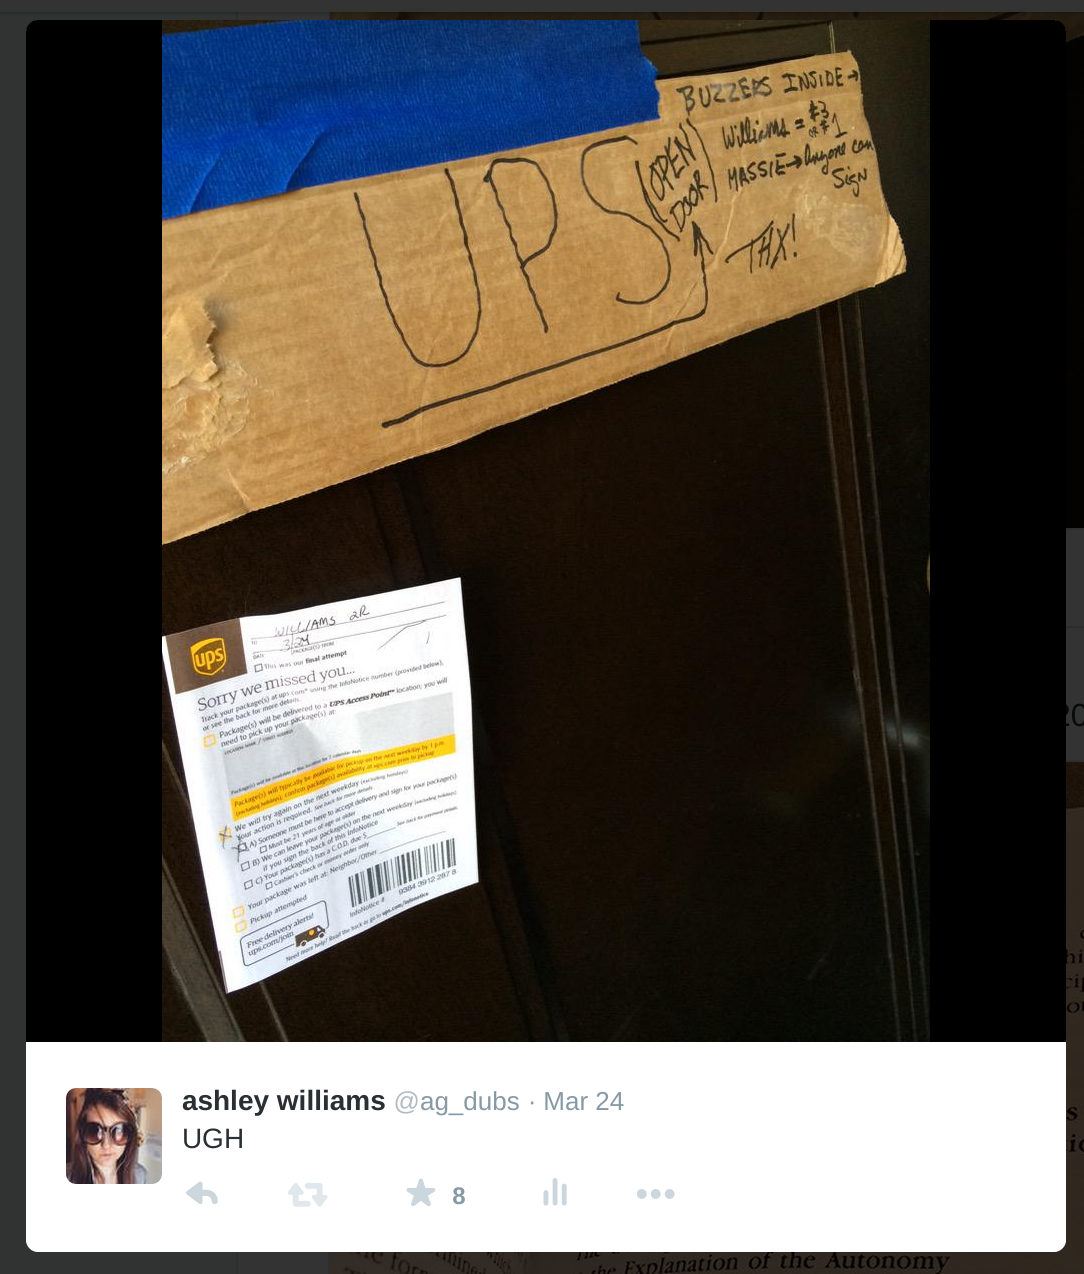 BUZZERS INSIDE →
Williams = #3
OR #1
MASSIE → Anyone can
Sign
THX!
UPS
(OPEN
DOOR)
ups
TO WILLIAMS 2R
3/24
DATE PACKAGE(S) FROM
This was our final attempt
Sorry we missed you...
Track your package(s) at ups.com® using the InfoNotice number (provided below),
or see the back for more details.
Package(s) will be delivered to a UPS Access Point™ location; you will
need to pick up your package(s) at:
LOCATION NAME / STREET NUMBER
Package(s) will be available at this location for 7 calendar days.
Package(s) will typically be available for pickup on the next weekday by 1 p.m.
(excluding holidays), confirm package(s) availability at ups.com prior to pickup
We will try again on the next weekday (excluding holidays)
Your action is required. See back for more details
A) Someone must be here to accept delivery and sign for your package(s)
Must be 21 years of age or older
B) We can leave your package(s) on the next weekday (excluding holidays)
if you sign the back of this InfoNotice
C) Your package(s) has a C.O.D. due $ See back for payment details
Cashier's check or money order only
Your package was left at: Neighbor/Other
Pickup attempted
InfoNotice # 9384 3912 287 8
Free delivery alerts!
ups.com/join
Need more help? Read the back or go to ups.com/infonotice
ashley williams @ag_dubs · Mar 24
UGH
8
the Explanation of the Autonomy